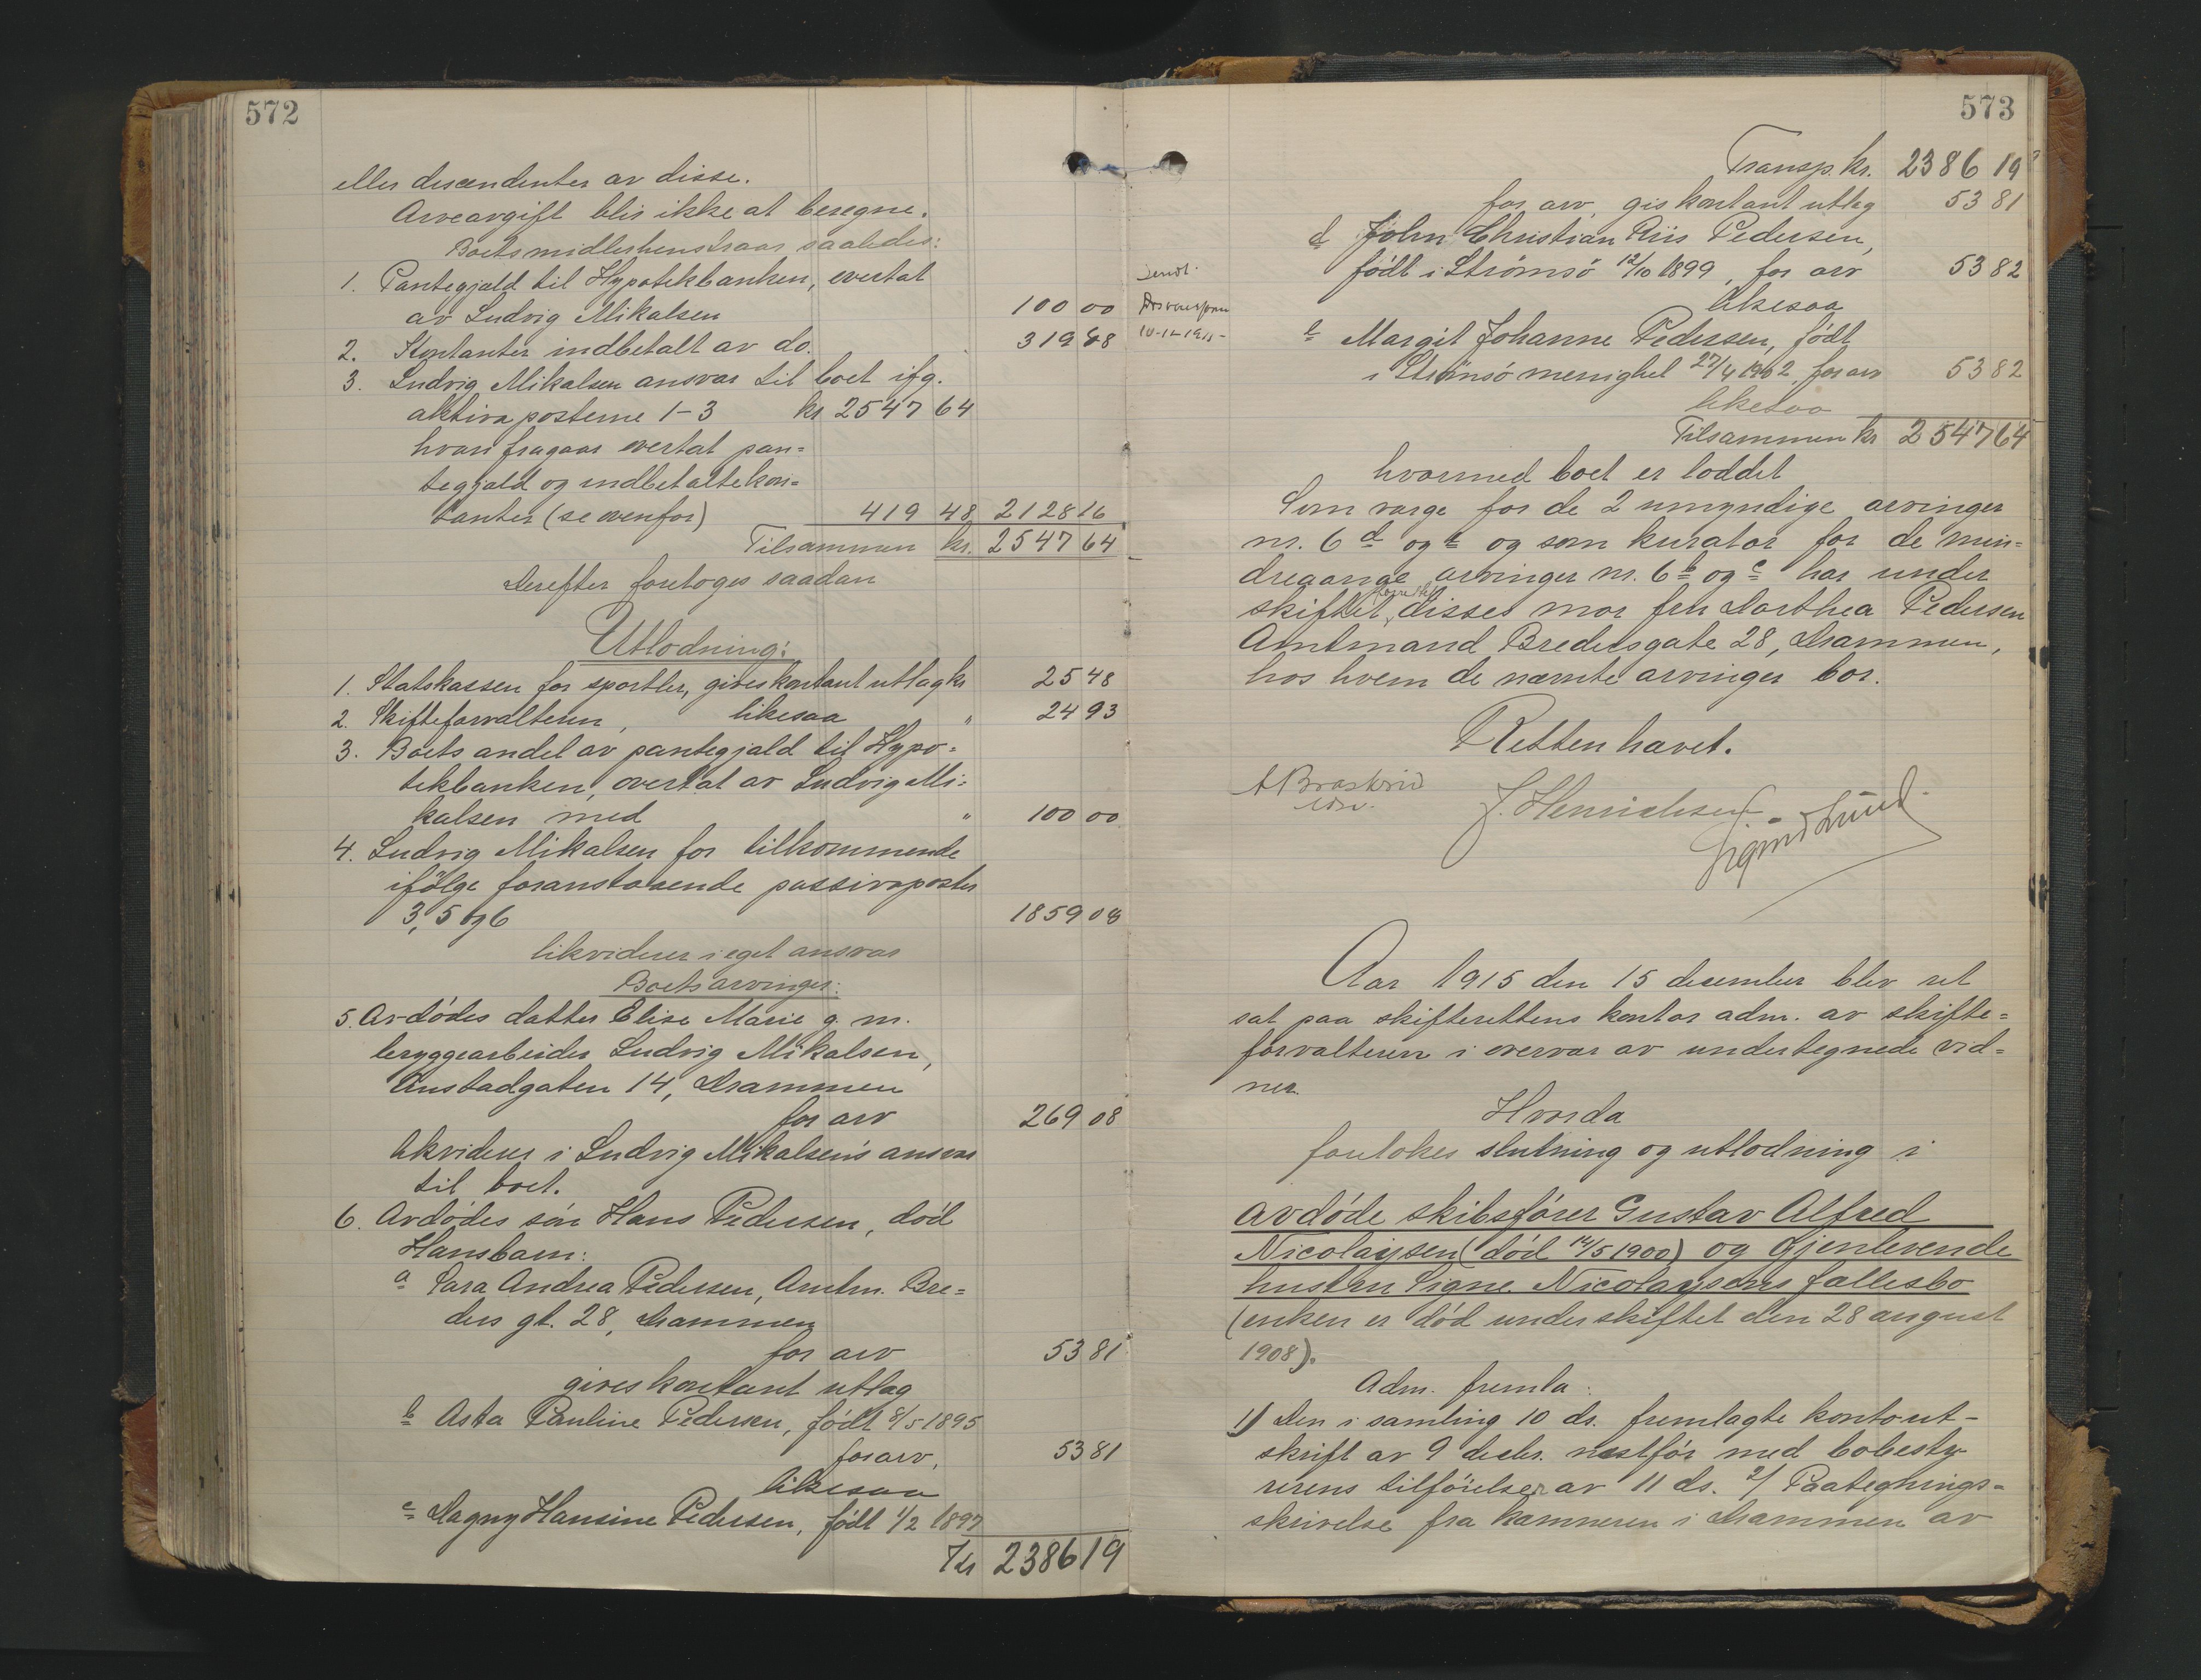 572
eller descendenter av disse.
Arveavgift blir ikke at beregne.
Boets midler henstaar saaledes:
1. Pantegjæld til Hypotekbanken, overtat
av Ludvig Mikalsen 100 00
2. Kontanter indbetalt av do. 319 48
3. Ludvig Mikalsen ansvar til boet ifg.
aktivaposterne 1-3 kr 2547 64
hvori fragaar overtat pan=
tegjæld og indbetalte kon=
tanter (se ovenfor) 419 48 2128 16
Tilsammen kr. 2547 64
Derefter foretoges saadan
Utlodning:
1. Statskassen for sportler, gives kontant utlæg kr 25 48
2. Skifteforvalteren, likesaa " 24 93
3. Boets andel av pantegjæld til Hypo=
tekbanken, overtat av Ludvig Mi=
kalsen med " 100 00
4. Ludvig Mikalsen for tilkommende
ifølge foranstaaende passivaposter
3, 5 og 6 1859 08
likviderer i eget ansvar
Boets arvinger:
5. Avdødes datter Elise Marie g. m.
bryggearbeider Ludvig Mikalsen,
Anstadgaten 14, Drammen
for arv 269 08
likviderer i Ludvig Mikalsen's ansvar
til boet.
6. Avdødes søn Hans Pedersen, død
Hans barn:
a Sara Andrea Pedersen, Amtm. Bre=
ders gt. 28, Drammen
for arv 53 81
gives kontant utlæg
b Asta Pauline Pedersen, født 8/5 1895
for arv, 53 81
likesaa
c Dagny Hansine Pedersen, født 1/2 1897
Kr 2386 19
sendt
10-12-1915-
573
Transp. kr. 2386 19
for arv, gis kontant utlæg 53 81
d John Christian Riis Pedersen,
født i Strømsø 12/10 1899, for arv 53 82
likesaa
e Margit Johanne Pedersen, født
i Strømsø menighet 27/4 1902 for arv 53 82
likesaa
Tilsammen kr 2547 64
hvormed boet er loddet
Som verge for de 2 umyndige arvinger
nr. 6 d og e og som kurator for de min=
dreaarige arvinger nr. 6 b og c har under
skiftet disses mor fru Dorthea Pedersen
Amtmand Bredersgate 28, Drammen,
hos hvem de nævnte arvinger bor.
Retten hævet.
J. Henrichsen
Sigurd Lund
Aar 1915 den 15 december blev ret
sat paa skifterettens kontor adm. av skifte=
forvalteren i overvær av undertegnede vid=
ner.
Hvorda
foretokes slutning og utlodning i
avdøde skibsfører Gustav Alfred
Nicolaysen (død 14/5 1900) og gjenlevende
hustru Signe Nicolaysens fællesbo
(enken er død under skiftet den 28 august
1908).
Adm. fremla:
1) Den i samling 10 ds. fremlagte kontout-
skrift av 9 decbr. næstfør med bobesty
rerens tilføielser av 11 ds. 2/ Paategnings=
skrivelse fra kæmneren i Drammen av